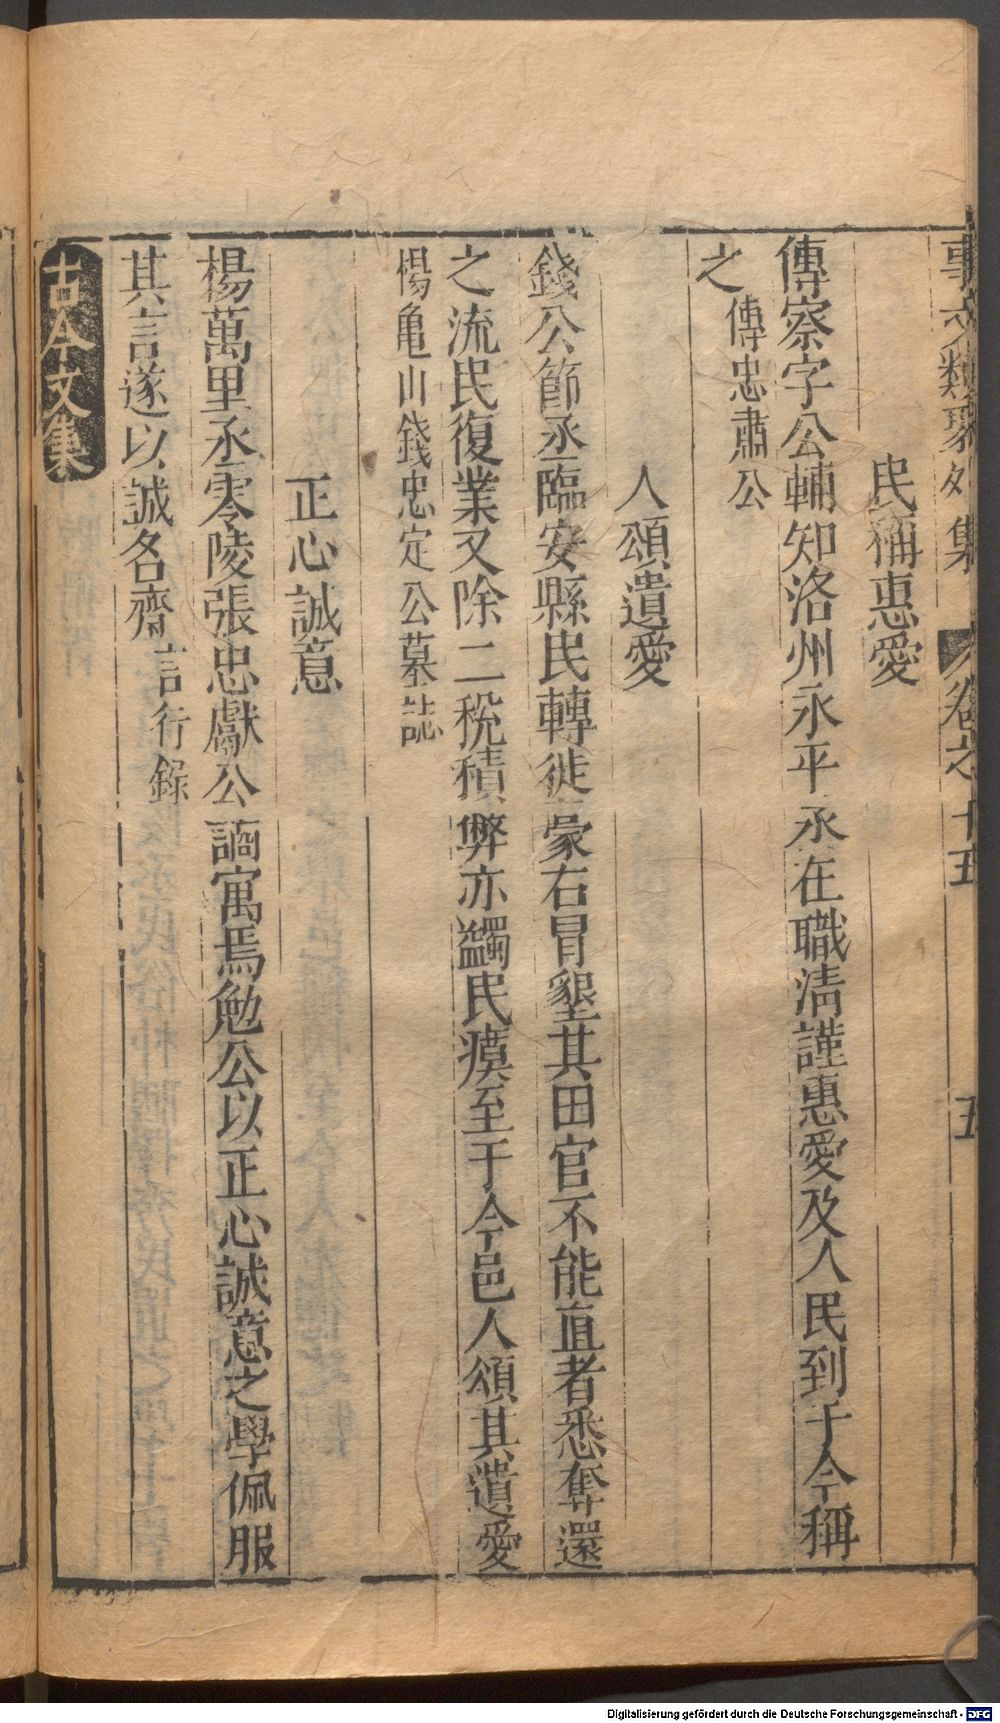 事文類聚外集 卷之十五 五
民稱惠愛
傅察字公輔知洛州永平丞在職清謹惠愛及人民到于今稱
之 傅忠肅公
人頌遺愛
錢公節丞臨安縣民轉徙豪右冒墾其田官不能直者悉奪還
之流民復業又除二稅積弊亦蠲民瘼至于今邑人頌其遺愛
楊龜山錢忠定公墓誌
正心誠意
楊萬里丞零陵張忠獻公謫寓焉勉公以正心誠意之學佩服
其言遂以誠名齋 言行錄
古今文集
Digitalisierung gefördert durch die Deutsche Forschungsgemeinschaft - DFG